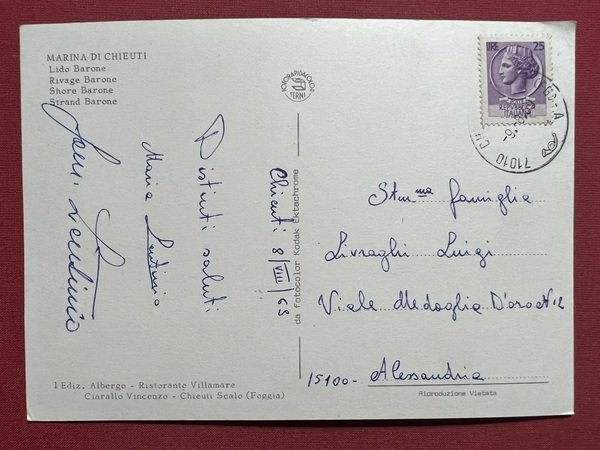 MARINA DI CHIEUTI
Lido Barone
Rivage Barone
Shore Barone
Strand Barone
FOTORAPIDACOLOR
TERNI
LIRE 25
REPUBBLICA
ITALIANA
71010
Chieuti 8/VIII/69
Distinti saluti
Maria
da fotocolor Kodak Ektachrome
Stm.ma famiglia
Livraghi Luigi
Viale Medaglia D'oro N12
15100- Alessandria
I Ediz. Albergo - Ristorante Villamare
Ciarallo Vincenzo - Chieuti Scalo (Foggia)
Riproduzione Vietata